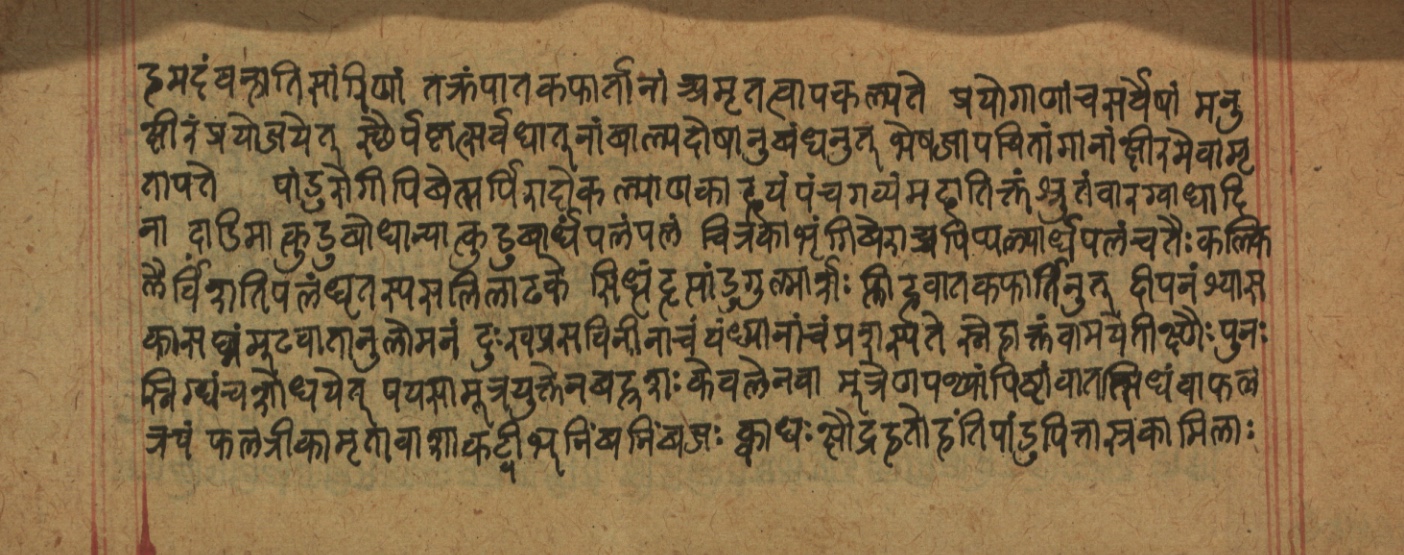 हृमदंयन्त्यातिसांरिणां तक्रंपातकफार्तानां अमृतत्वापकल्पते प्रयोगाणांचसर्वेषां मनु
क्षीरंप्रयोजयेत् स्थैर्पकृत्सर्वधातूनांबाल्यदोषानुबंधनुत् भेषजापचितांगानांक्षीरमेवामृ
तापते पांडुरोगीपिबेत्सर्पिरादौकल्याणकाह्वयं पंचगव्यंमहातिक्तंशृतंवारग्वाधादि
ना दाडिमात्कुडुबोधान्यात्कुडुबार्धंपलंपलं चित्रकाशृंगिबेराच्चपिप्पल्यार्धपलंचतैः कल्कि
तैर्विंशतिपलंघृतस्पसलिलाढके सिध्धंहृत्पांडुगुल्मार्शः प्लीहवातकफार्तिनुत् दीपनंश्वास
कासघ्नंमुढवातानुलोमनं दुःखप्रसविनीनांचवंध्यानांचंप्रशस्पते स्नेहाक्तंवामयेतीक्ष्णैः पुनः
स्निग्धंचशोधयेत् पयसामूत्रयुक्तेनबहुशः केवलेनवा मूत्रेणपथ्यांपिष्टांवातत्सिध्धंवाफल
त्रपं फलत्रीकामृतावाशाकट्वीभूनिंबनिंबजः क्वाथः क्षौद्रहृतोहंतिपांडुपित्तास्त्रकामिलाः